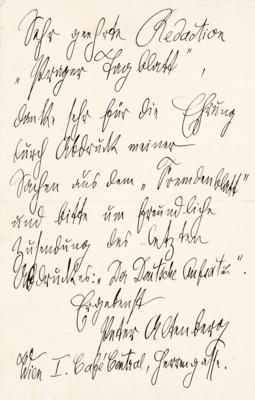 Sehr geehrte Redaction
„Prager Tagblatt",
danke sehr für die Ehrung
durch Abdruck meiner
Sachen aus dem „Fremdenblatt"
und bitte um freundliche
Zusendung des letzten
Abdruckes: „Der Deutsche
Ergebenst
Peter Altenberg
Wien I. Café Central, Herrengasse.